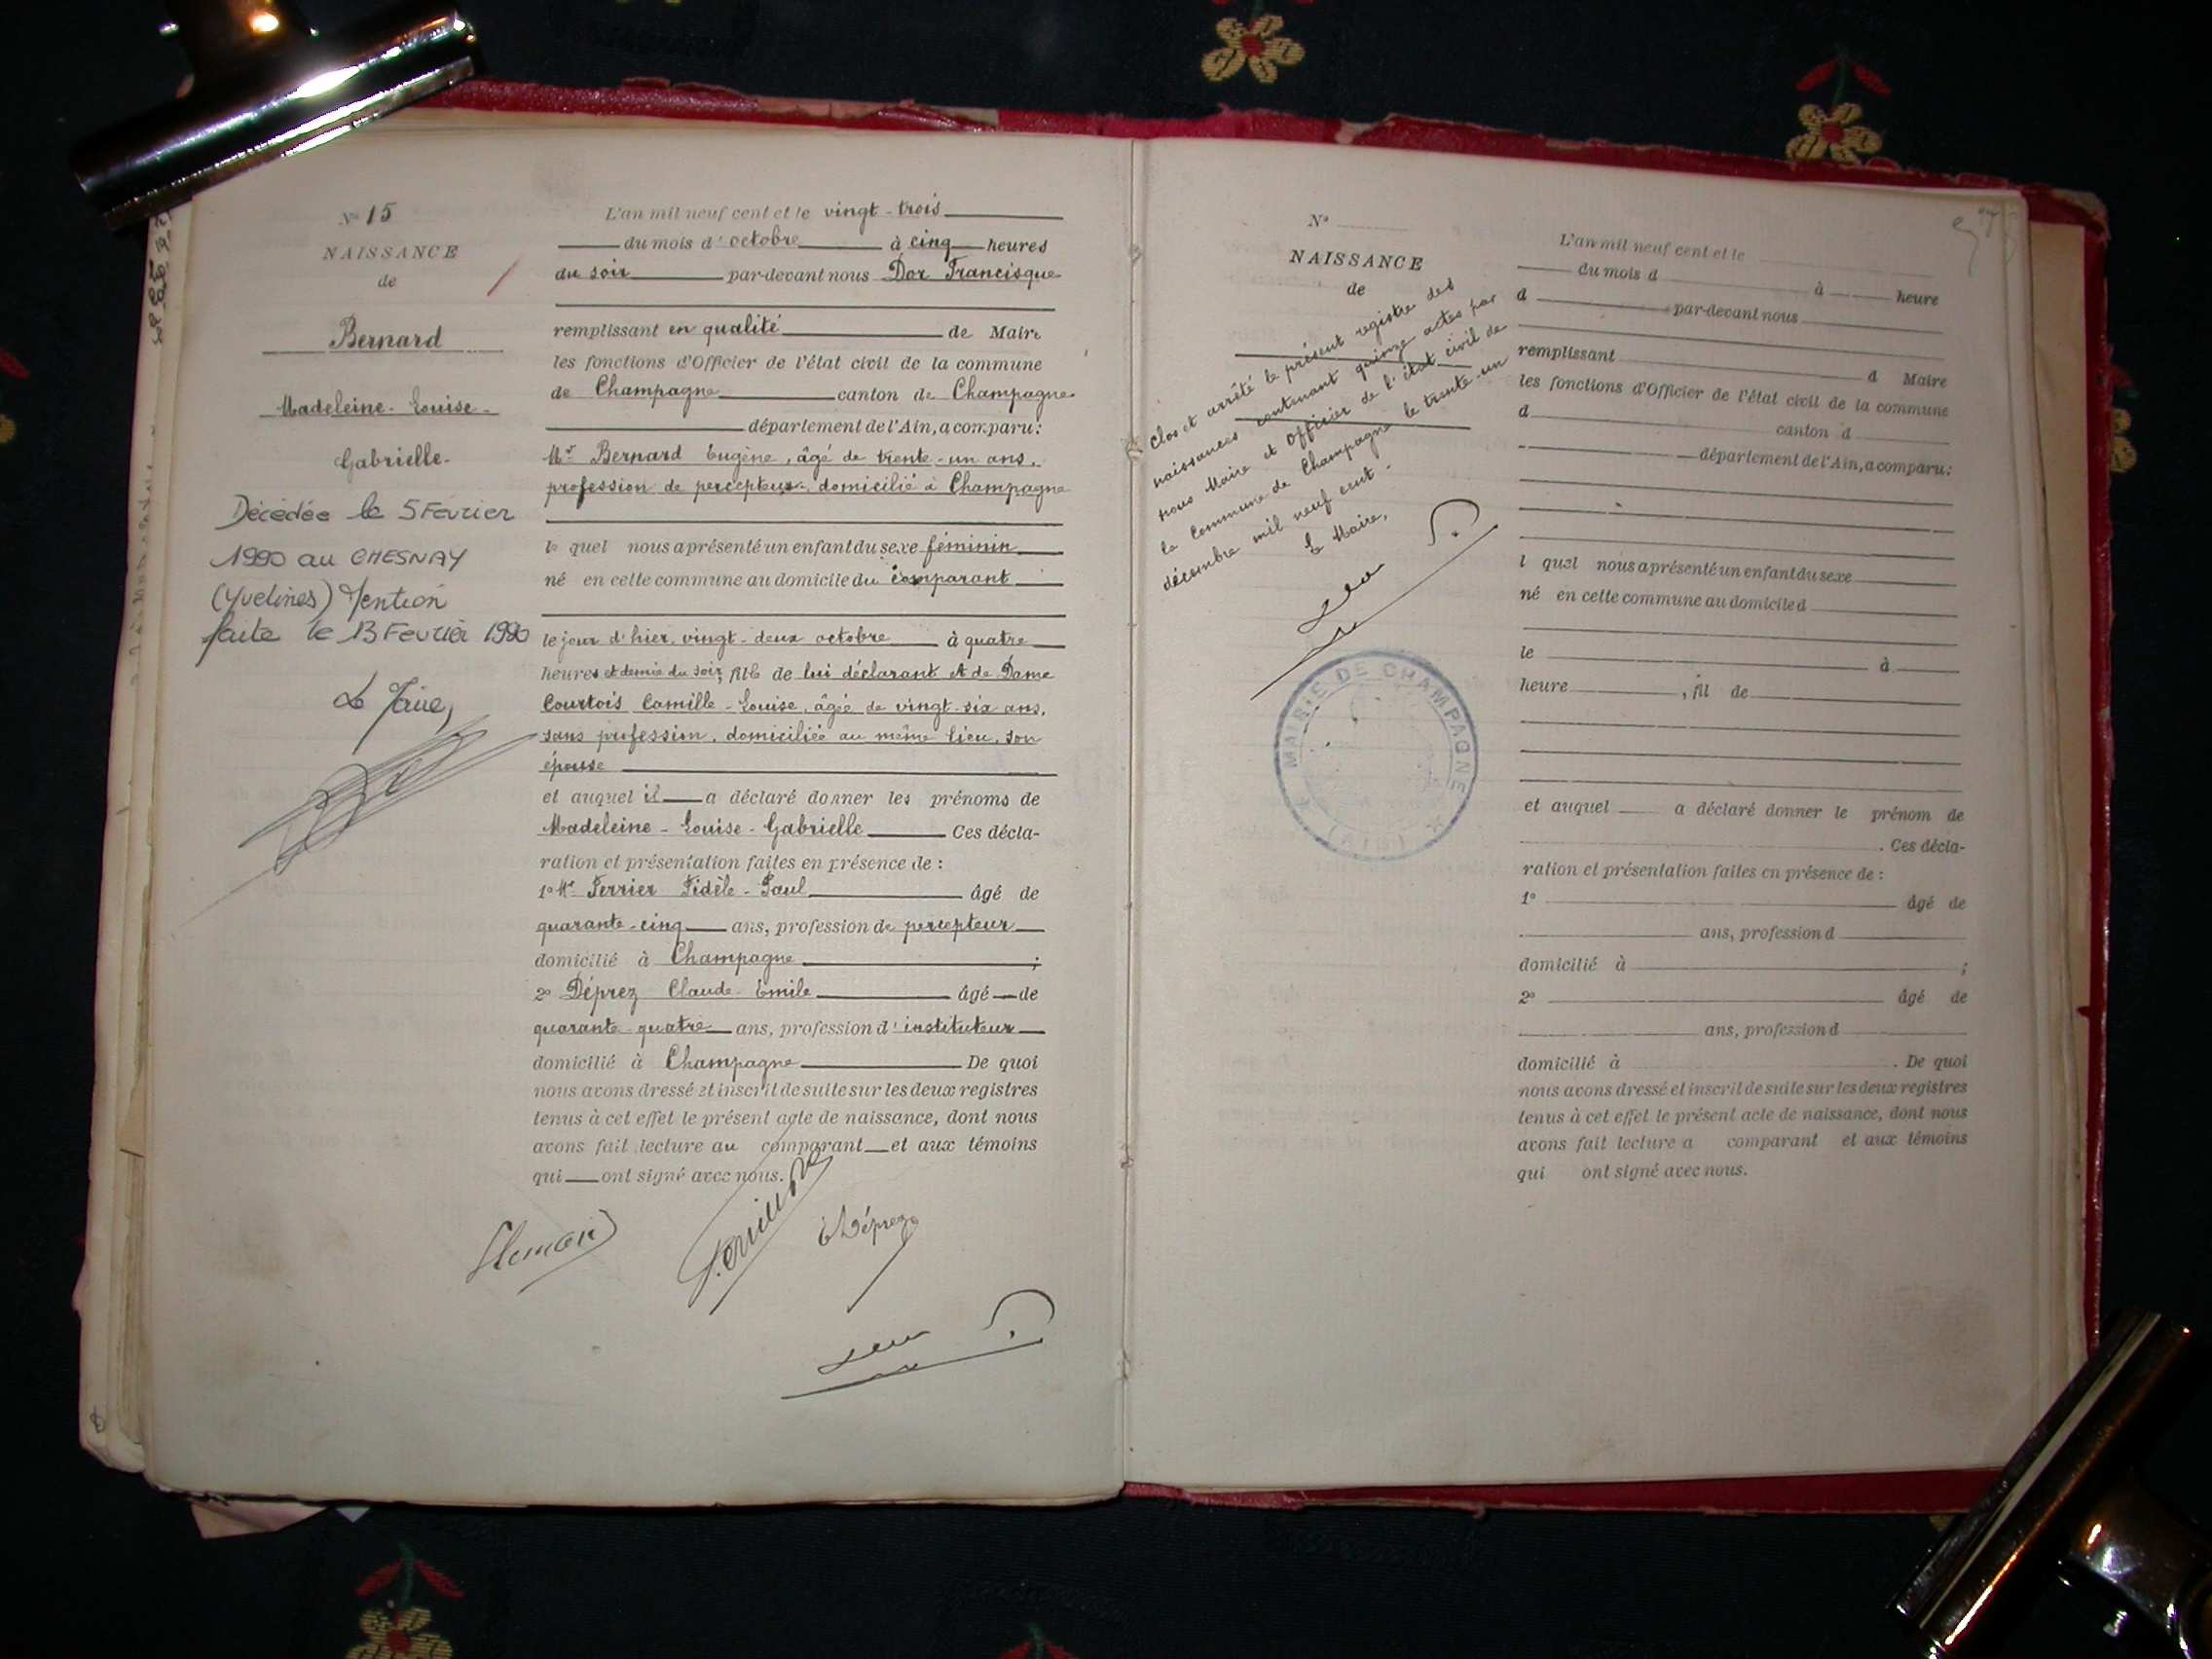 N° 15
NAISSANCE
de
Bernard
Madeleine-Louise-
Gabrielle-
Décédée le 5 Février
1990 au CHESNAY
(Yvelines) Mention
faite le 13 Février 1990
Le Maire,
L'an mil neuf cent et le vingt-trois
du mois d'octobre à cinq heures
du soir par-devant nous Dor Francisque
remplissant en qualité de Maire
les fonctions d'Officier de l'état civil de la commune
de Champagne canton de Champagne
département de l'Ain, a comparu:
Mr Bernard Eugène, âgé de trente-un ans,
profession de percepteur, domicilié à Champagne
le quel nous a présenté un enfant du sexe féminin
né en cette commune au domicile du comparant
le jour d'hier, vingt-deux octobre à quatre
heures et demie du soir, fille de lui déclarant et de Dame
Courtois Camille-Louise, âgée de vingt-six ans,
sans profession, domiciliée au même lieu, son
épouse
et auquel il a déclaré donner les prénoms de
Madeleine-Louise-Gabrielle Ces décla-
ration et présentation faites en présence de :
1° Mr Perrier Fidèle-Paul âgé de
quarante-cinq ans, profession de percepteur
domicilié à Champagne ;
2° Déprez Claude-Emile âgé de
quarante-quatre ans, profession d'instituteur
domicilié à Champagne De quoi
nous avons dressé et inscrit de suite sur les deux registres
tenus à cet effet le présent acte de naissance, dont nous
avons fait lecture au comparant et aux témoins
qui ont signé avec nous.
E Déprez
N°
NAISSANCE
de
Clos et arrêté le présent registre des
naissances contenant quinze actes par
nous Maire et Officier de l'état civil de
la Commune de Champagne le trente-un
décembre mil neuf cent.
Le Maire,
MAIRIE DE CHAMPAGNE
(AIN)
L'an mil neuf cent et le
du mois d à heure
d par-devant nous
remplissant d Maire
les fonctions d'Officier de l'état civil de la commune
d canton d
département de l'Ain, a comparu:
l quel nous a présenté un enfant du sexe
né en cette commune au domicile d
le à
heure , fil de
et auquel a déclaré donner le prénom de
. Ces décla-
ration et présentation faites en présence de :
1° âgé de
ans, profession d
domicilié à ;
2° âgé de
ans, profession d
domicilié à . De quoi
nous avons dressé et inscrit de suite sur les deux registres
tenus à cet effet le présent acte de naissance, dont nous
avons fait lecture a comparant et aux témoins
qui ont signé avec nous.